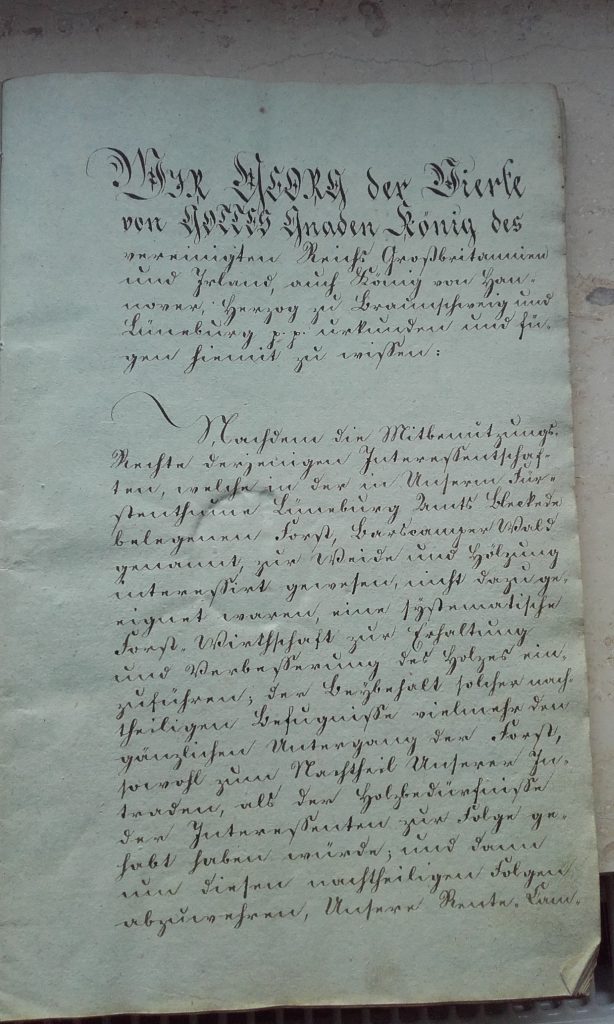 WIR GEORG der Vierte
von GOTTES Gnaden König des
vereinigten Reichs Großbritannien
und Irland, auch König von Han-
nover, Herzog zu Braunschweig und
Lüneburg p. p. urkunden und fü-
gen hiemit zu wissen:
Nachdem die Mitbenutzungs-
Rechte derjenigen Interessentschaf-
ten, welche in der in Unserm Für-
stenthume Lüneburg Amts Bleckede
belegenen Forst, Barscamper Wald
genannt, zur Weide und Hölzung
interessirt gewesen, nicht dazu ge-
eignet waren, eine systematische
Forst-Wirthschaft zur Erhaltung
und Verbesserung des Holzes ein-
zuführen; der Beybehalt solcher nach-
theiligen Befugnisse vielmehr den
gänzlichen Untergang der Forst,
sowohl zum Nachtheil Unserer In-
traden, als der Holzbedürfnisse
der Interessenten zur Folge ge-
habt haben würde; und dann
um diesen nachtheiligen Folgen
abzuwehren, Unsere Rente-Cam-